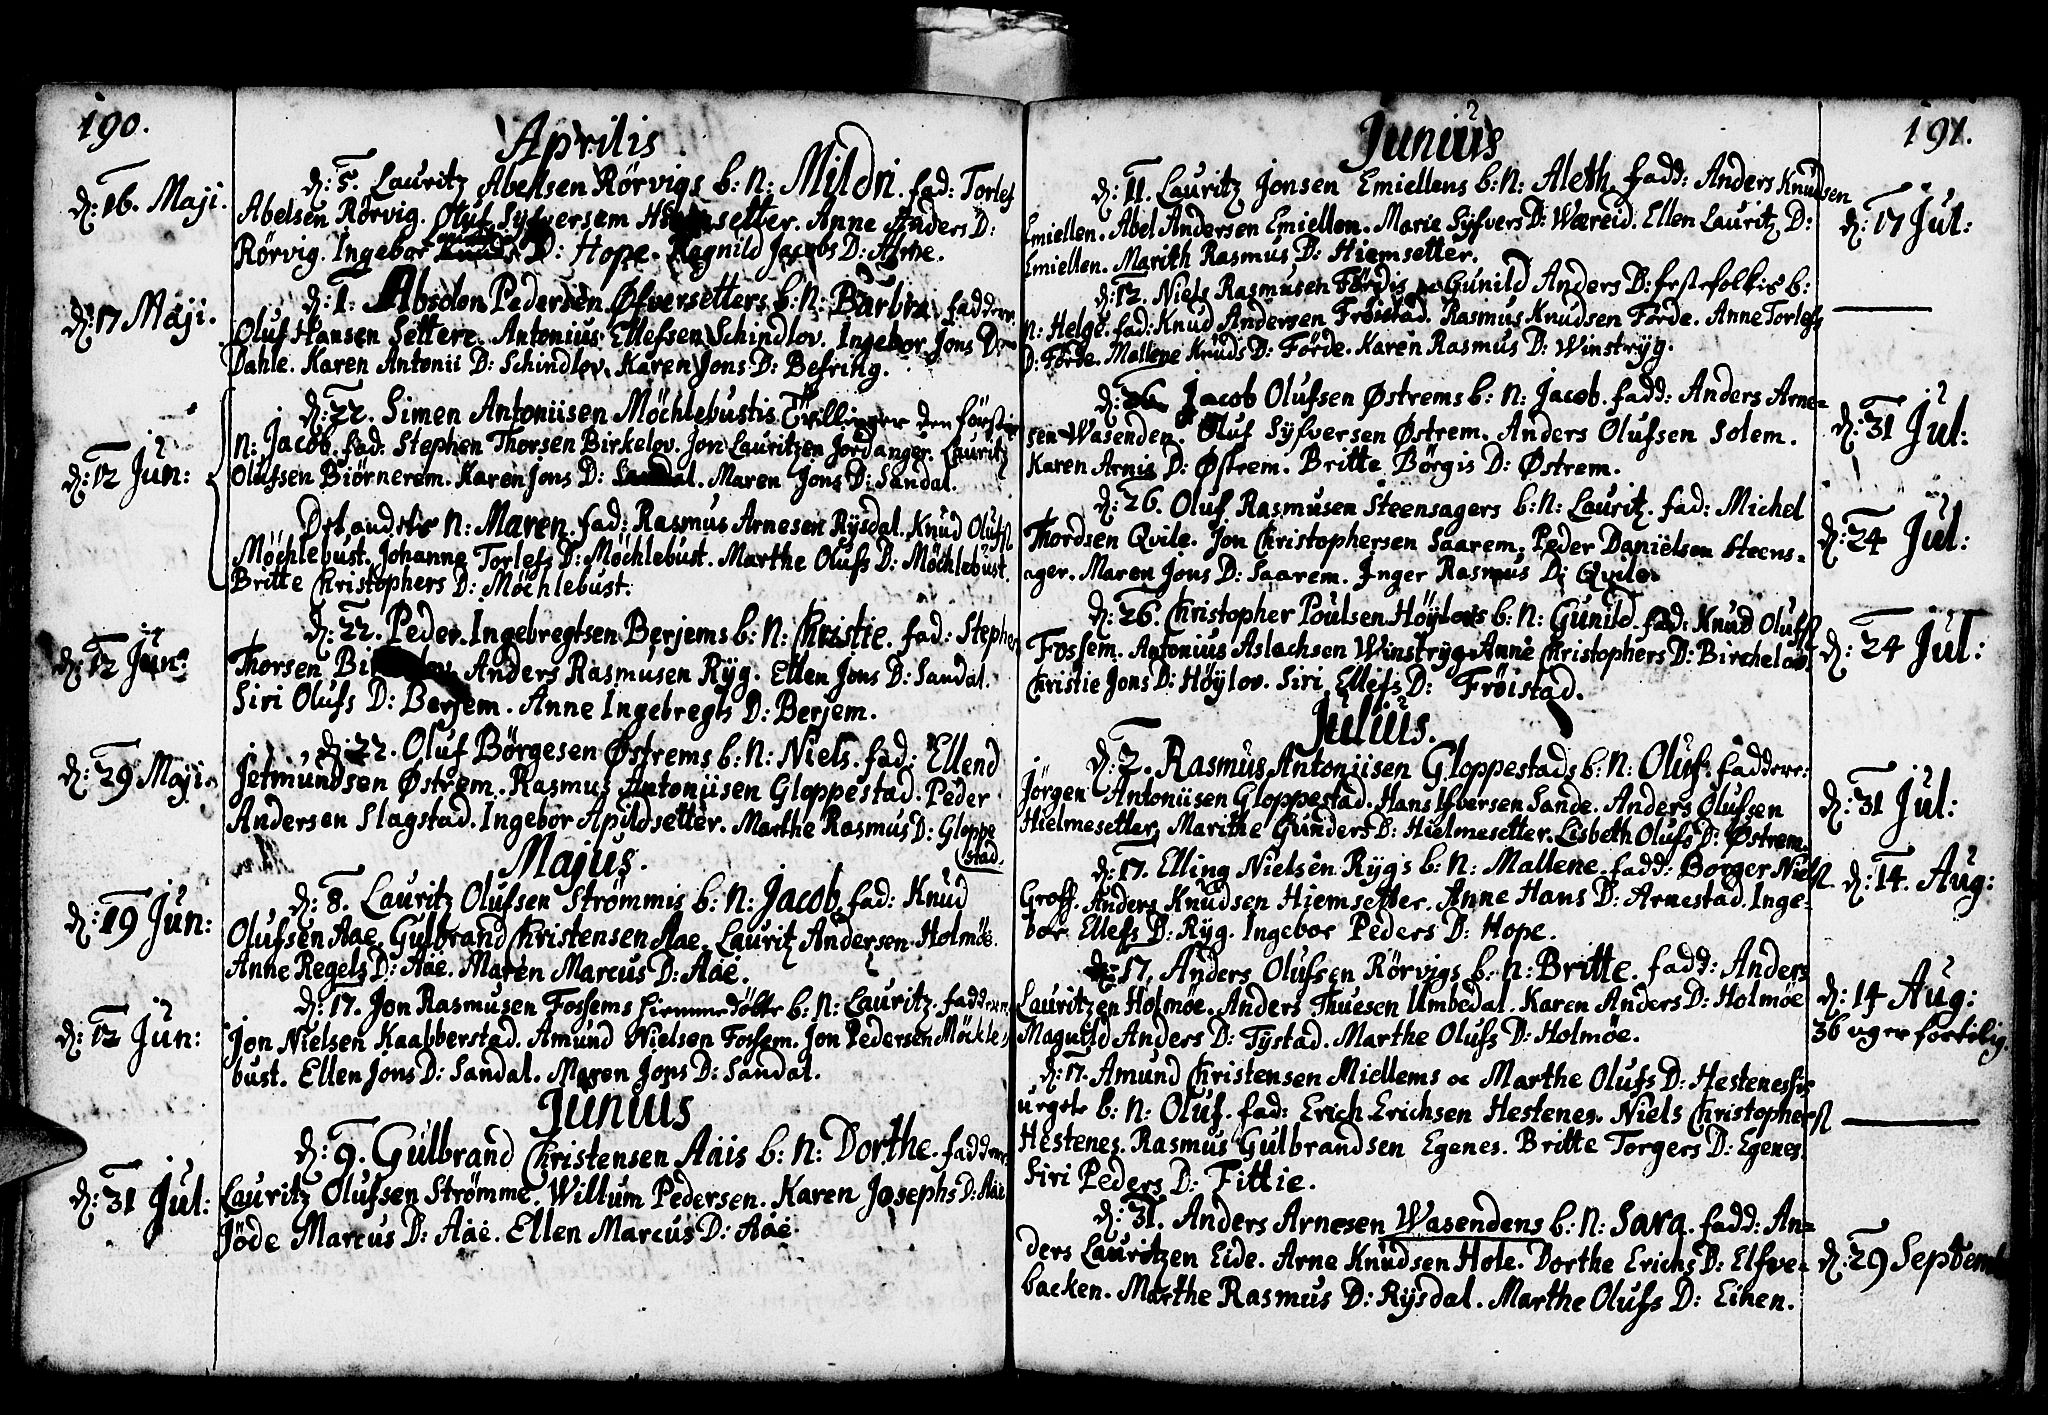 190.
Aprilis
d: 16. Maji.
d: 5. Lauritz Abelsen Rörvigs b: n: Mildri. fad: Torlef
Abelsen Rörvig. Oluf Sylfversem setter. Anne Anders D:
Rörvig. Ingebor D: Hope. Ragnild Jacobs D: Arne.
d: 17 Maji.
d: 1. Absolon Pedersen Øfversetters b: n: Barbra faddere.
Oluf Hansen Settere. Antonius Ellefsen Schindlov. Ingebor Jons D:
Dahle. Karen Antonii D: Schindlov. Karen Jons D: Befring.
d: 12 Jun:
d: 22. Simen Antoniisen Möchlebustis Tvillinger den förstis
n: Jacob. fad: Stephen Thorsen Birkelov. Jon Lauritzen Jordanger. Lauritz
Olufsen Biörnerem. Karen Jons D: Sandal. Maren Jons D: Sandal.
Det andetis n: Maren. fad: Rasmus Arnesen Rÿsdal. Knud Olufs
Möchlebust. Johanne Torlefs D: Möchlebust. Marthe Olufs D: Möchlebust.
Britte Christophers D: Möchlebust.
d: 12 Jun:
d: 22. Peder Ingebregtsen Berjems b: n: Christie. fad: Stephen
Thorsen Anders Rasmusen Rÿg. Ellen Jons D: Sandal.
Siri Olufs D: Berjem. Anne Ingebregts D: Berjem.
d: 29 Maji.
d: 22. Oluf Börgesen Østrems b: n: Niels. fad: Ellend
Jetmundsen Østrem. Rasmus Antoniisen Gloppestad. Peder
Andersen Slagstad. Ingebor Apildsetter. Marthe Rasmus D: Gloppe
(stad.
Majus.
d: 19 Jun:
d: 8. Lauritz Olufsen Strömmis b: n: Jacob. fad: Knud
Olufsen Aae. Gulbrand Christensen Aae. Lauritz Andersen Holmöe.
Anne Regels D: Aae. Maren Marcus D: Aae.
d: 12 Jun:
d: 17. Jon Rasmusen Fossems hiemmedöbte b: n: Lauritz. faddere.
Jon Nielsen Kaabberstad. Amund Nielsen Fossem. Jon Pedersen Möckle-
bust. Ellen Jons D: Sandal. Maren Jons D: Sandal.
Junius
d: 31 Jul:
d: 9. Gulbrand Christensen Aais b: n: Dorthe. faddere:
Lauritz Olufsen Strömme. Willum Pedersen. Karen Josephs D: Aae
Jöde Marcus D: Aae. Ellen Marcus D: Aae.
191.
Junius
d: 11. Lauritz Jonsen Emiellens b: n: Aleth. fadd: Anders Knudsen
Emiellen. Abel Andersen Emiellen. Marie Sÿfvers D: Wæreid. Ellen Lauritz D:
Emiellen. Marith Rasmus D: Hiemsetter.
d: 17 Jul:
d: 12. Niels Rasmusen Fördis oc Gunild Anders D: festefolkis b:
n: Helge. fad: Knud Andersen Fröistad. Rasmus Knudsen Förde. Anne Torlefs
D: Förde. Mallene Knuds D: Förde. Karen Rasmus D: Winstrÿg.
d: 26. Jacob Olufsen Østrems b: n: Jacob. fadd: Anders Arne-
sen Wasenden. Oluf Sÿfversen Østrem. Anders Olufsen Solem.
Karen Arnis D: Østrem. Britte Börgis D: Østrem.
d: 31 Jul:
d: 26. Oluf Rasmusen Steensagers b: n: Lauritz. fad: Michel
Thordsen Qvile. Jon Christophersen Saarem. Peder Daniëlsen Steens-
ager. Maren Jons D: Saarem. Inger Rasmus D: Qvile.
d: 24 Jul:
d: 26. Christopher Poulsen Höÿlovs b: n: Gunild. fad: Knud Olufs
Fossem. Antonius Aslachsen Winstrÿg. Anne Christophers D: Birchelov.
Christie Jons D: Höÿlov. Siri Ellefs D: Fröistad.
d: 24 Jul:
Julius.
d: 2. Rasmus Antoniisen Gloppestads b: n: Oluf. faddere:
Jörgen Antoniisen Gloppestad. Hans Ifversen Sande. Anders Olufsen
Hielmesetter. Marithe Gunders D: Hielmesetter. Lisbeth Olufs D: Østrem.
d: 31 Jul:
d: 17. Elling Nielsen Rÿgs b: n: Mallene. fadd: Borger Niels
Groff. Anders Knudsen Hiemsetter. Anne Hans D: Arnestad. Inge-
bor Ellefs D: Rÿg. Ingebor Peders D: Hope.
d: 14. Aug:
d: 17. Anders Olufsen Rörvigs b: n: Britte. fadd: Anders
Lauritzen Holmöe. Anders Thuesen Umbedal. Karen Anders D: Holmöe
Magnild Anders D: Tÿstad. Marthe Olufs D: Holmöe.
d: 14 Aug:
36 uger fortilig.
d: 17. Amund Christensen Miellems oc Marthe Olufs D: Hestenessis
uegte b: n: Oluf. fad: Erich Erichsen Hestenes. Niels Christophers
Hestenes. Rasmus Gulbrandsen Egenes. Britte Torgers D: Egenes.
Siri Peders D: Fittie.
d: 31. Anders Arnesen Wasendens b: n: Sara. fadd: An-
ders Lauritzen Eide. Arne Knudsen Hole. Dorthe Erichs D: Elfve-
backen. Marthe Rasmus D: Rÿsdal. Marthe Olufs D: Eihen.
d: 29 Septemb